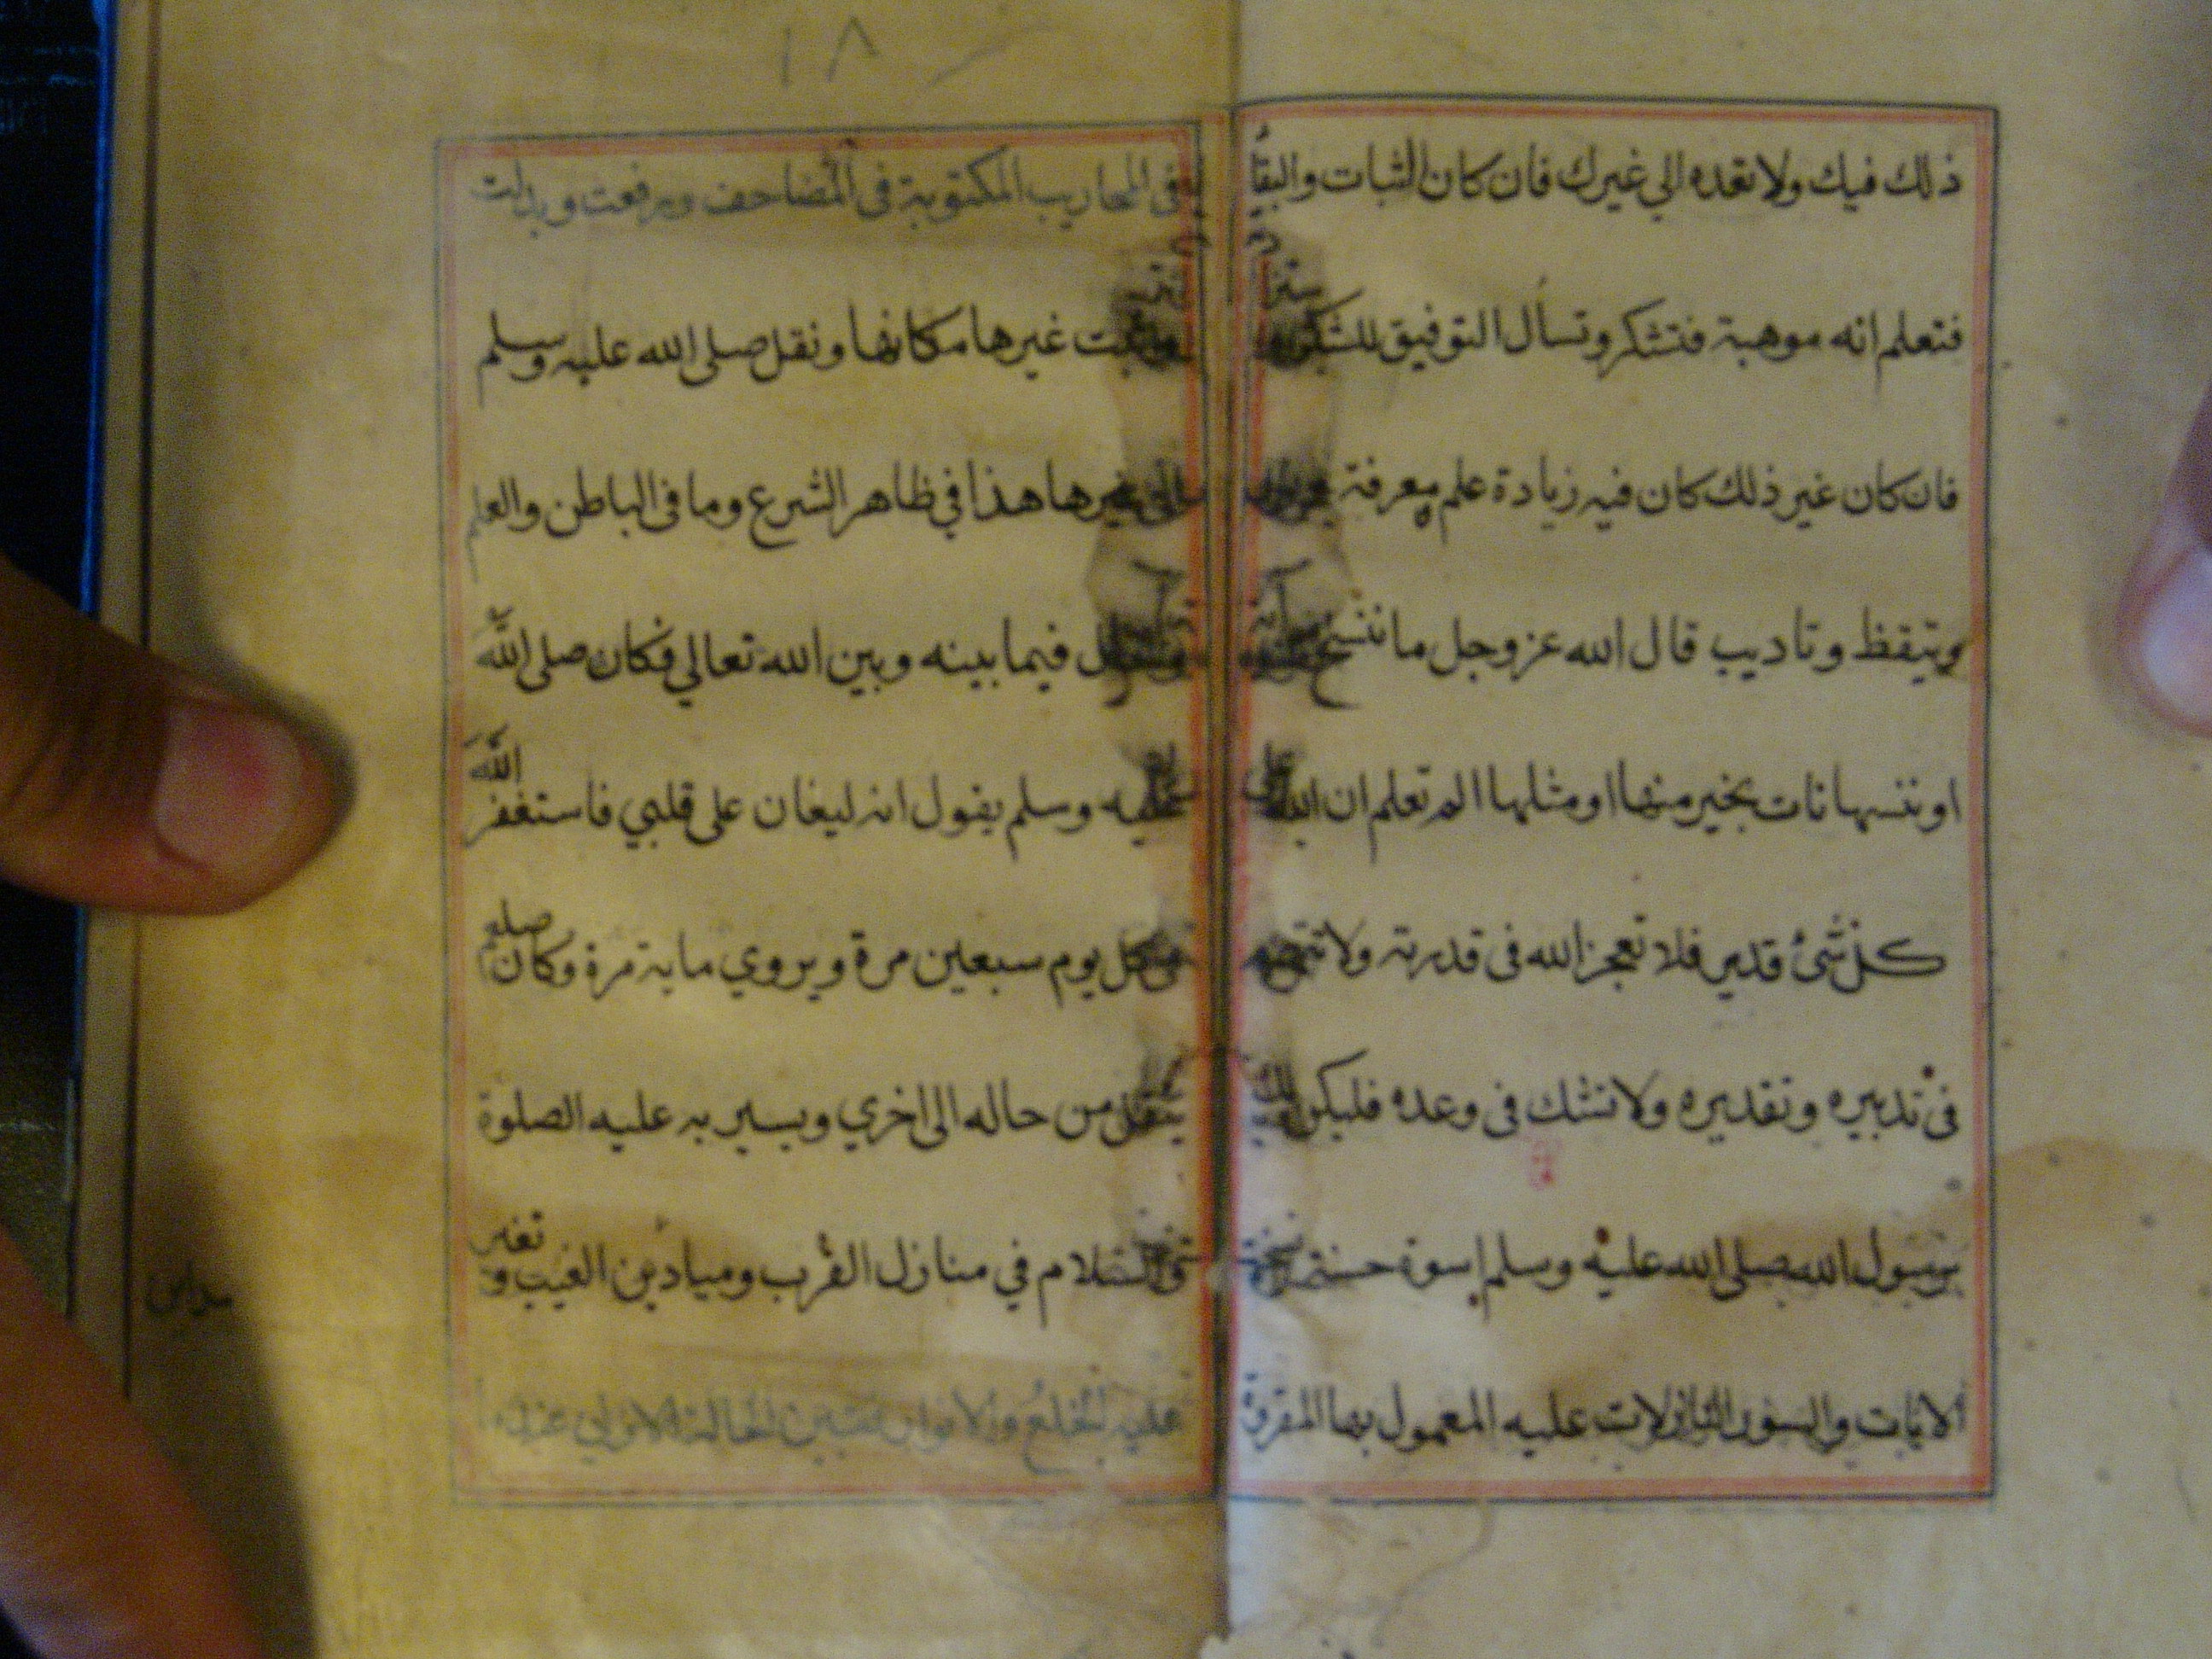 ١٨
ذلك فيك ولا تعده الي غيرك فان كان الثبات والبقا
فتعلم انه موهبة فتشكر وتسأل التوفيق للشكر
فان كان غير ذلك كان فيه زيادة علم معرفة
وتيقظ وتاديب قال الله عز وجل ما ننسخ
او ننسها نات بخير منها او مثلها الم تعلم ان الله
كل شئ قدير فلا تعجز الله فى قدرته ولا تتهمه
فى تدبيره وتقديره ولا تشك فى وعده فليكن لك
برسول الله صلى الله عليه وسلم اسوة حسنة
الايات والسور النازلات عليه المعمول بها المقروة
فى المحاريب المكتوبة فى المصاحف ورفعت وبدلت
غيرها مكانها ونقل صلى الله عليه وسلم
الى غيرها هذا في ظاهر الشرع وما فى الباطن والعلم
فيما بينه وبين الله تعالي فكان صلى الله
عليه وسلم يقول انه ليغان على قلبي فاستغفر الله
فى كل يوم سبعين مرة ويروي ماية مرة وكان صلعم
ينقل من حاله الى اخري ويسير به عليه الصلوة
والسلام في منازل القرب وميادين الغيب و تغير
عليه الخلع والانوار